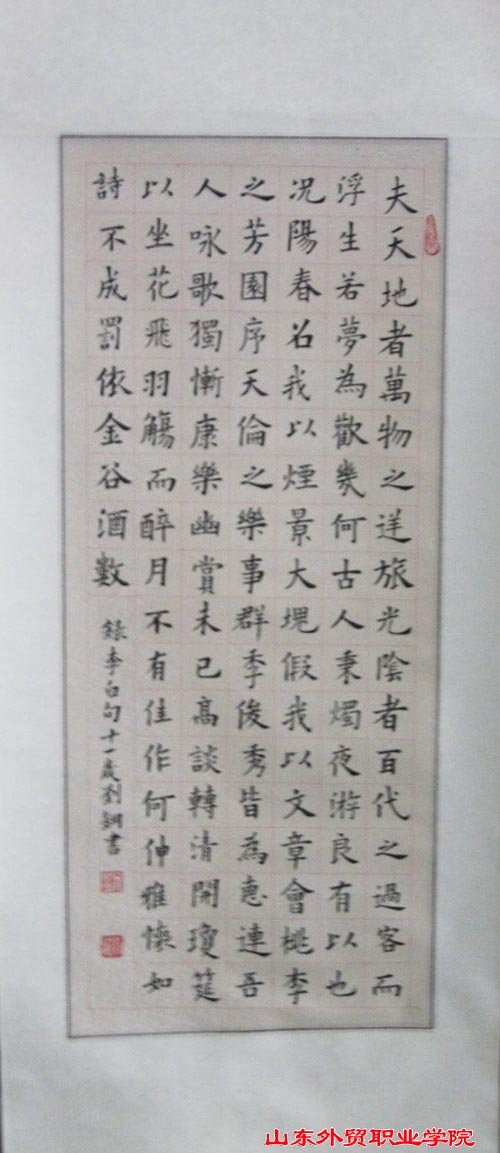 夫天地者萬物之逆旅光陰者百代之過客而
浮生若夢為歡幾何古人秉燭夜游良有以也
况陽春召我以煙景大塊假我以文章會桃李
之芳園序天倫之樂事群季俊秀皆為惠連吾
人咏歌獨慚康樂幽賞未已高談轉清開瓊筵
以坐花飛羽觴而醉月不有佳作何伸雅懷如
詩不成罰依金谷酒數
錄李白句十一歲劉鋼書
山东外贸职业学院